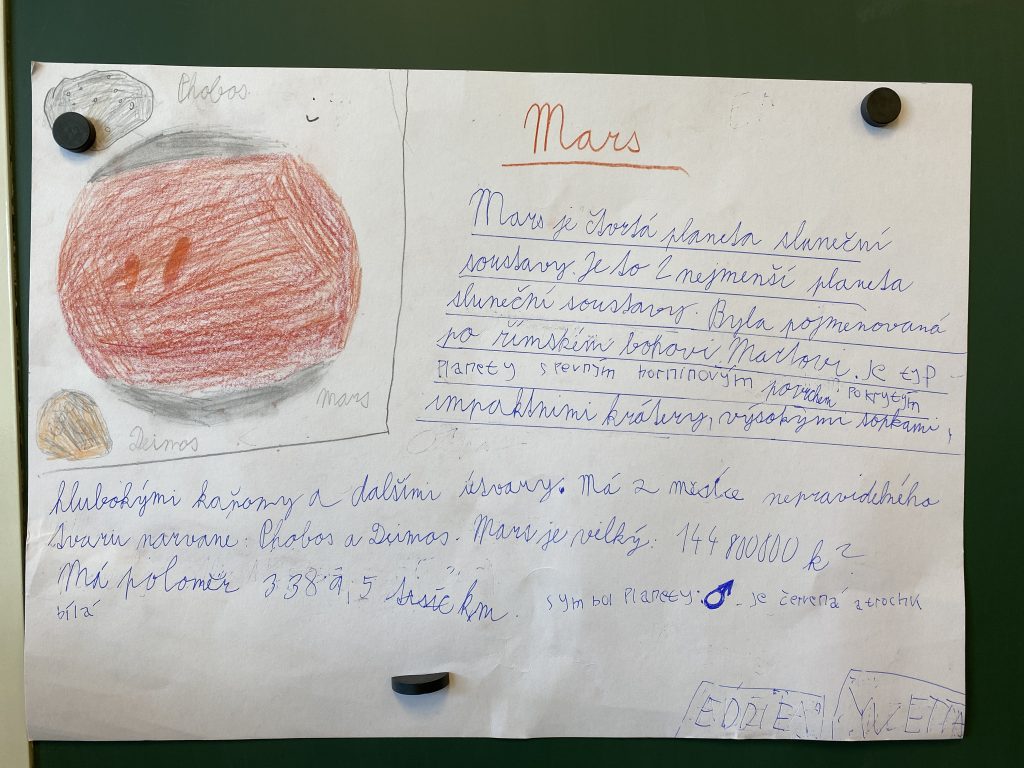 Phobos
mars
Deimos
Mars
Mars je čtvrtá planeta sluneční
soustavy. Je to 2 nejmenší planeta
sluneční soustavy. Byla pojmenovaná
po římském bohovi Martovi. Je typ
planety s pevným horninovým povrchem pokrytým
impaktnimi krátery, vysokými sopkami,
hlubokými kaňony a dalšími útvary. Má 2 měsíce nepravidelného
tvaru narvane: Phobos a Deimos. Mars je velký: 144 800000 k²
Má poloměr 3389,5 tisíc km. symbol Planety: ♂. je červená a trochu
bílá
EDDIE